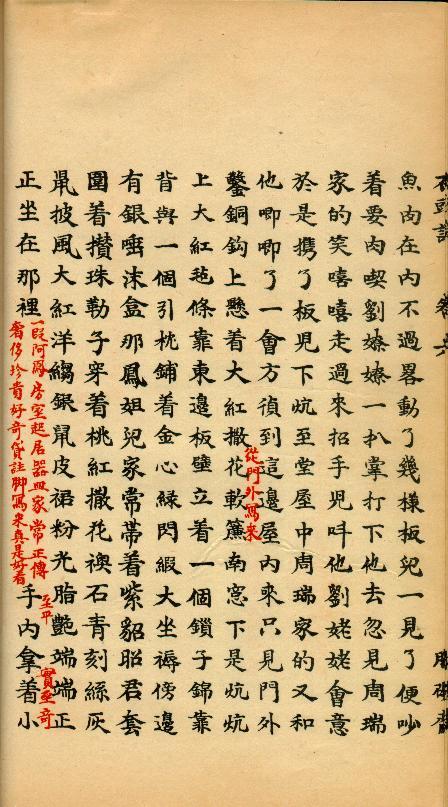 魚肉在內不過畧動了幾樣板兒一見了便吵
着要肉喫劉嫽嫽一扒掌打下他去忽見周瑞
家的笑嘻嘻走過來招手兒呌他劉姥姥會意
於是攜了板兒下炕至堂屋中周瑞家的又和
他唧唧了一會方蹭到這邊屋內來只見門外
從門外寫來
鏨銅鈎上懸着大紅撒花軟簾南窓下是炕炕
上大紅毡條靠東邊板壁立着一個鎖子錦靠
背與一個引枕鋪着金心綠閃緞大坐褥傍邊
有銀唾沫盒那鳳姐兒家常帶着紫貂昭君套
圍着攢珠勒子穿着桃紅撒花襖石青刻絲灰
鼠披風大紅洋縐銀鼠皮裙粉光脂艷端端正
正坐在那裡
一段阿鳳房室起居器皿家常正傳
奢侈珍貴好奇貨註脚寫來真是好看
手內拿着小
至平
實至奇